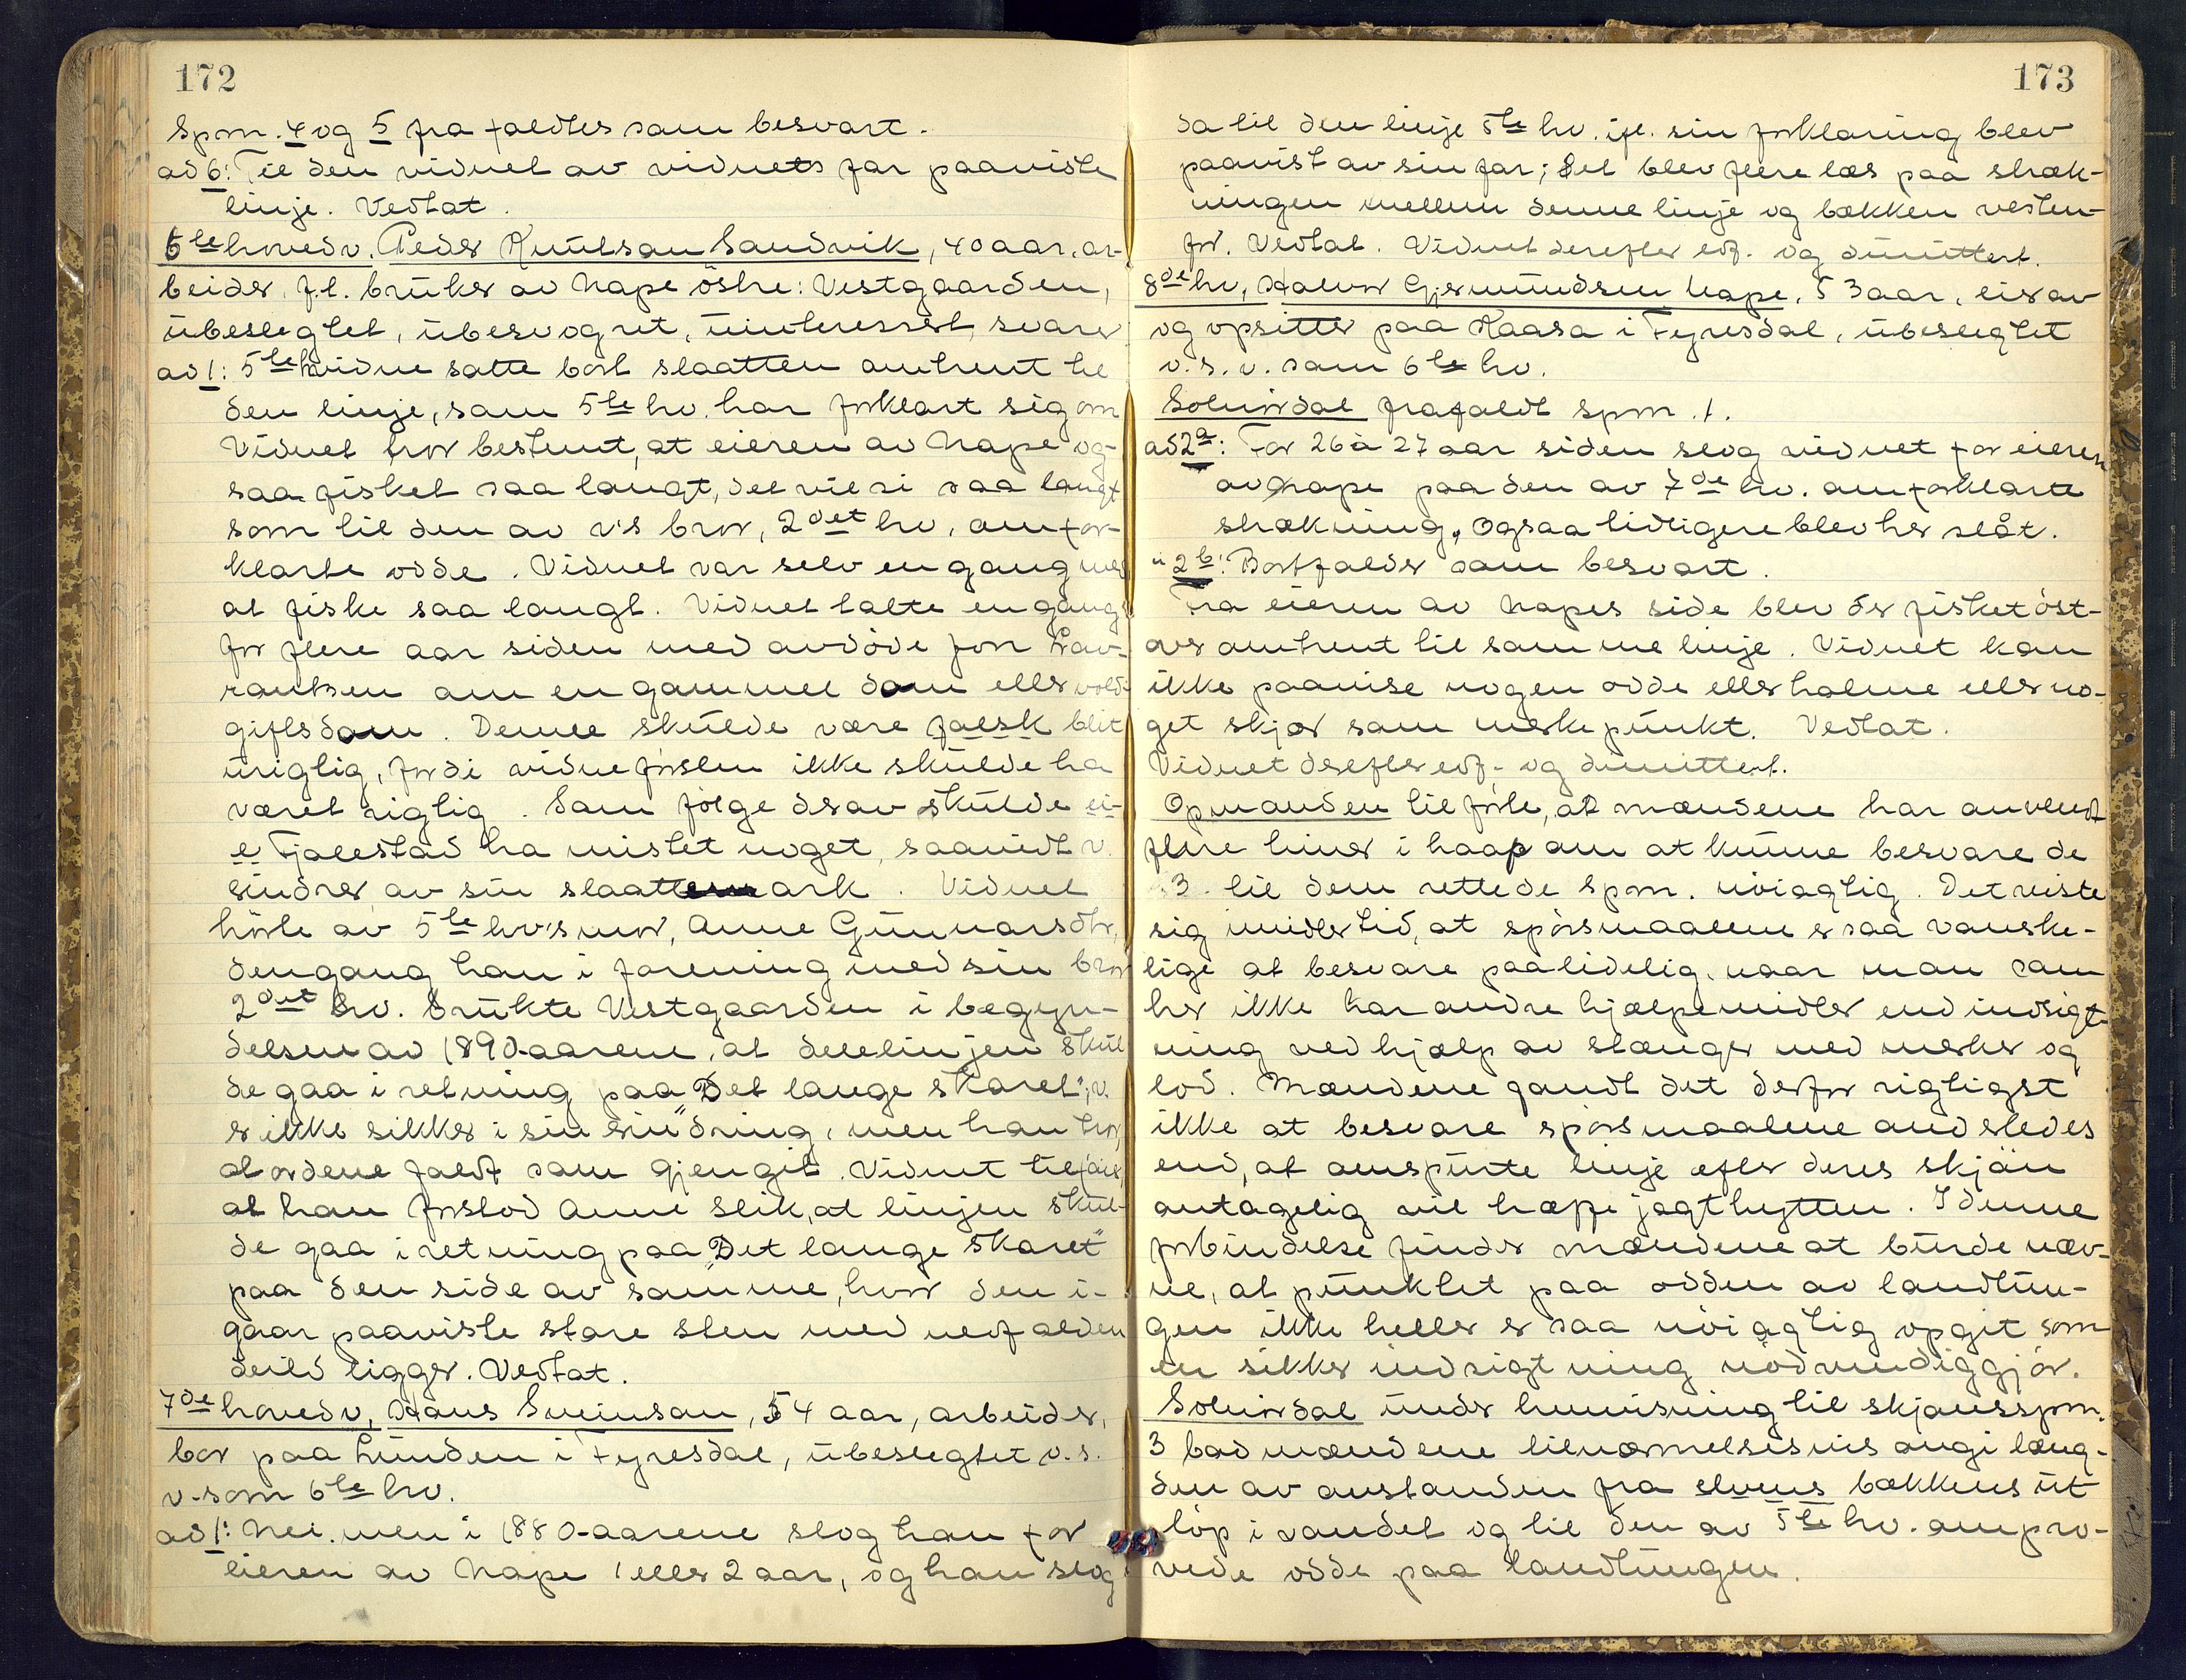 172
Spm. 4 og 5 fra faldtes som besvart.
ad 6: Til den vidnet av vidnets far paaviste
linje. Vedtat.
6te hovedv. Peder Knutson Sandvik, 40 aar, ar-
beider, f.t. bruker av Nape östre: Vestgaarden,
ubeslegtet, ubesvogret, uinteressert, svarer
ad 1: 5te hvidne satte bort slaatten omtrent til
den linje, som 5te hv. har forklart sig om
Vidnet tror bestemt, at eieren av Nape og-
saa fisket saa langt, det vil si saa langt
som til den av v's bror, 2det hv, omfor-
klarte odde. Vidnet var selv engang med
at fiske saa langt. Vidnet talte engang
for flere aar siden med avdöde Jon Lav-
rantsen om en gammel dom eller vold-
giftsdom. Denne skulde være falsk blit
uriglig, fordi vidneförslen ikke skulde ha
været riglig. Som fölge derav skulde ei-
e Fjalestad ha mistet noget, saavidt v.
erindrer, av sin slaattemark. Vidnet
hörte av 5te hv's mor, Anne Gunnarsdtr,
dengang han i forening med sin bror
2det hv. brukte Vestgaarden i begyn-
delsen av 1890-aarene, at delelinjen skul
de gaa i retning paa "Det lange skaret"; v.
er ikke sikker i sin erindring, men han tror,
at ordene faldt som gjengit. Vidnet tilföier,
at han forstod Anne slik, at linjen skul-
de gaa i retning paa "Det lange skaret"
paa den side av samme, hvor den i-
gaar paaviste store sten med nedfalden
deild ligger. Vedtat.
7de hovedv, Hans Sveinson, 54 aar, arbeider,
bor paa Lunden i Fyresdal, ubeslegtet v.s.
v. som 6te hv.
ad 1: Nei. men i 1880-aarene slog han for
eieren av Nape 1 eller 2 aar, og han slog
173
da til den linje 5te hv. ifl. sin forklaring blev
paavist av sin far; det blev flere læs paa stræk-
ningen mellem denne linje og bækken vesten-
for. Vedtat. Vidnet derefter edf. og dimittert.
8de hv, Halvor Gjermundsen Nape, 53 aar, eier av
og opsitter paa Kaasa i Fyresdal, ubeslegtet
v. s. v. som 6te hv.
Solmirdal frafaldt spm. 1.
ad 2a: For 26 à 27 aar siden slog vidnet for eieren
av Nape paa den av 7de hv. omforklarte
strækning. Ogsaa tidligere blev her slåt.
" 2b: Bortfalder som besvart.
Fra eieren av Napes side blev der fisket öst-
over omtrent til samme linje. Vidnet kan
ikke paavise nogen odde eller holme eller no-
get skjær som merkepunkt. Vedtat.
Vidnet derefter edf. og dimittert.
Opmanden tilförte, at mændene har anvendt
flere timer i haap om at kunne besvare de
3 til dem rettede spm. nöiagtig. Det viste
sig imidlertid, at spörsmaalene er saa vanske-
lige at besvare paalidelig, naar man som
her ikke har andre hjælpemidler end indsigt-
ning ved hjælp av stænger med merker og
lod. Mændene fandt det derfor rigtigst
ikke at besvare spörsmaalene anderledes
end, at omspurte linje efter deres skjön
antagelig vil træffe jagthytten. I denne
forbindelse finder mændene at burde næv-
ne, at punktet paa odden av landtun-
gen ikke heller er saa nöiagtig opgit som
en sikker indsigtning nödvendiggjör.
Solmirdal under henvisning til skjönsspm.
3 bad mændene tilnærmelsesvis angi læng-
den av avstanden fra elvens bækkens ut
löp i vandet og til den av 5te hv. ompro-
vede odde paa landtungen.